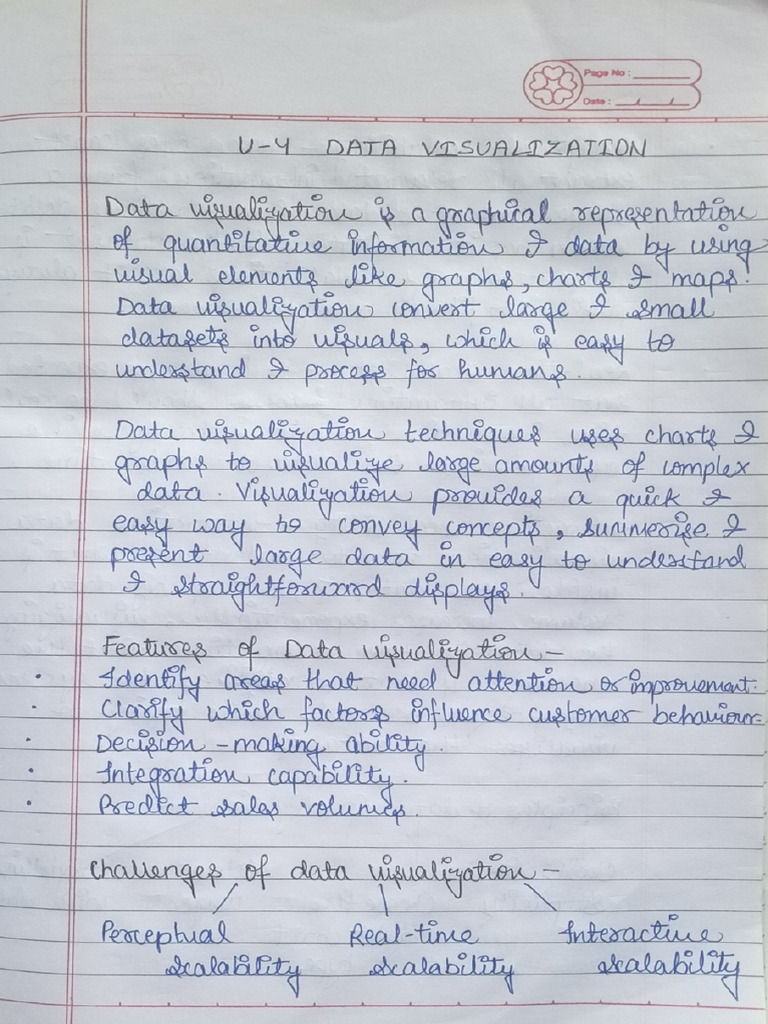 Page No :
Date :
U-4 DATA VISUALIZATION
Data visualization is a graphical representation
of quantitative information & data by using
visual elements like graphs, charts & maps.
Data visualization convert large & small
datasets into visuals, which is easy to
understand & process for humans.
Data visualization techniques uses charts &
graphs to visualize large amounts of complex
data. Visualization provides a quick &
easy way to convey concepts, summerise &
present large data in easy to understand
& straightforward displays.
Features of Data visualization -
• Identify areas that need attention or improvement.
• Clarify which factors influence customer behaviour.
• Decision-making ability.
• Integration capability.
• Predict sales volumes.
Challenges of data visualization -
Perceptual Real-time Interactive
scalability scalability scalability